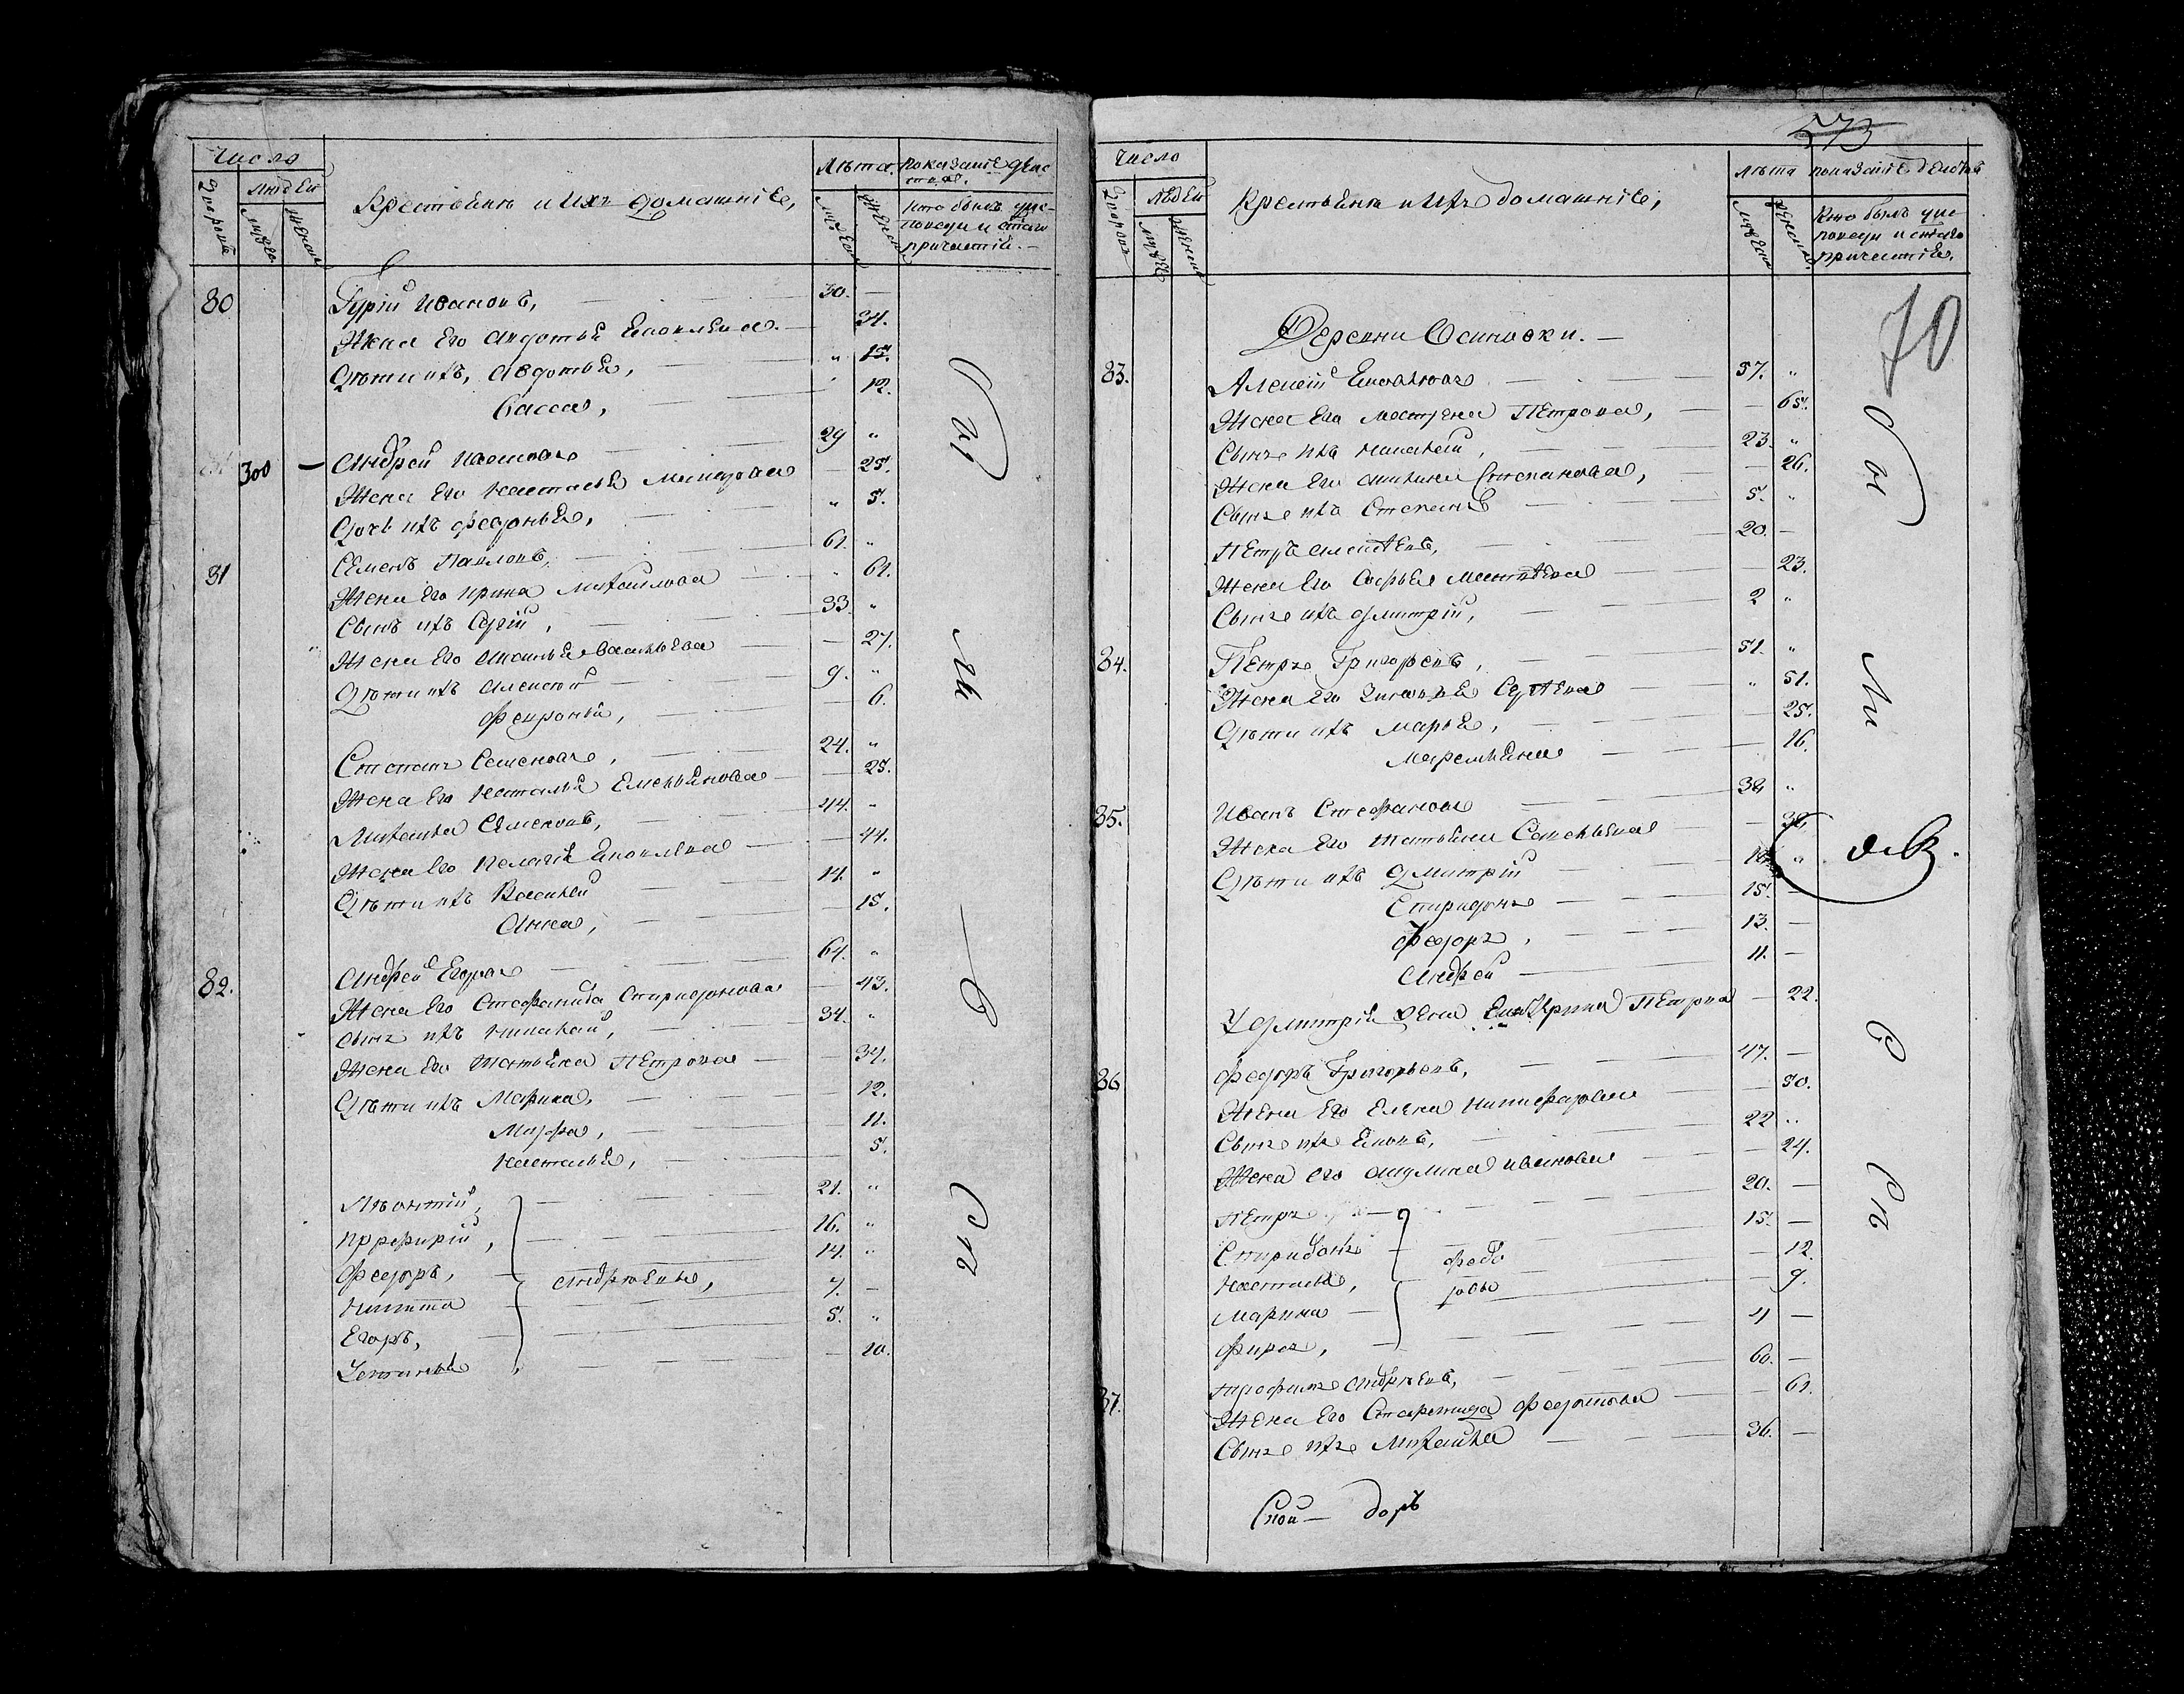 Число
Людей
Дворовъ
Мужес.
Женска
Крестьяня и Ихъ домашніе,
Лѣта.
Мужеска
Женска
показаніе дѣйс
тва.
Кто былъ уис-
поведи и стаго
причастія.
80
Гурій Ивановъ, 30. —
Жена Его Авдотья 34.
Дѣти ихъ, Авдотья, „ 15.
Васса, 12.
300
Андрей Ивановъ 29 „
Жена Его Настасья — 25.
Дочь ихъ Федонья, „ 5.
81
Семенъ Павловъ, 61. „
Жена Его Ирина Михайлова „ 61.
Сынъ ихъ Сергій, 33 „
Жена Его Васильева — 27.
Дѣти ихъ Алексѣй 9. „
— 6.
Степанъ Семеновъ, 24. „
Жена Его Наталья Емельянова — 25.
Михайла Семеновъ, 44. „
Жена Его Пелагія — 44.
Дѣти ихъ Василей 14. „
Анна, — 15.
82.
Андрей Егоровъ 64. „
Жена Его Стефанида Спиридонова — 43.
Сынъ ихъ Николай, 34. „
Жена Его Татьяна Петрова — 34.
Дѣти ихъ Марина, 12.
Марфа, 11.
Наталья, 5.
Леонтій, 21. „
Профирій, 16. „
Федоръ, 14. „
Никита 7. —
Андрѣевы,
Егоръ, 5. „
Устинья — 10.
573
70
Число
Людей
Дворовъ
Мужес
Женска
Крестьяня и Ихъ домашніе,
Лѣта
Мужеска
Женска.
показаніе действа
Кто былъ уис-
поведи и стаго
причастія,
Деревни Осиновки. —
83.
Алексѣй 57. „
Жена Его Матрена Петрова, — 65.
Сынъ ихъ Николай, 23. „
Жена Его Степанова, — 26.
Сынъ ихъ Степанъ 5. „
Петръ Алексѣевъ, 20. —
Жена Его Софья Матвѣева — 23.
Сынъ ихъ Дмитрій, 2 „
84.
Петръ Григорьевъ, 51. „
Жена Его Зиновья Сергѣева „ 51.
Дѣти ихъ Марья, — 25.
Маремьяна — 16.
85.
Иванъ Стефановъ 38 „
Жена Его Татьяна Савельева — 38
Дѣти ихъ Дмитрій „
Спиридонъ 15. —
Федоръ, 13. —
Андрей 11. —
У Дмитрія жена Ирина Петрова — 22.
86
Федоръ Григорьевъ, 47. —
Жена Его Елена Никифорова — 50.
Сынъ ихъ 22 „
Жена его Акулина Иванова — 24.
Петръ 20. —
Спиридонъ 15. —
Настасья, — 12.
Федо
ровы
Марина 9.
Фирсъ, 4 —
87.
Трофимъ Андрѣевъ, 60. —
Жена Его Федотова — 61.
Сынъ ихъ Михайла 36. —